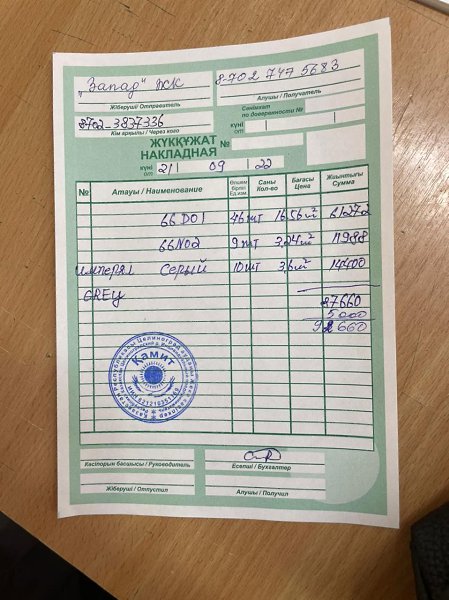 "Запад" ЖК 8-702 747 5683
Жіберуші/ Отправитель Алушы / Получатель
8702-3837336 Сенімхат
по доверенности №
Кім арқылы / Через кого күні
от
ЖҮКҚҰЖАТ №
НАКЛАДНАЯ
күні
от 21 09 22
№ Атауы / Наименование Өлшем бірлігі Ед.изм. Саны Кол-во Бағасы Цена Жиынтығы Сумма
66D01 46 шт 16,56 м² 61272
66N02 9 шт 3,24 м² 11988
империял Серый 10 шт 3,6 м² 14400
GREY
87660
5000
92660
Камит
Касіпорын басшысы / Руководитель Есепші / Бухгалтер
Жіберуші / Отпустил Алушы / Получил